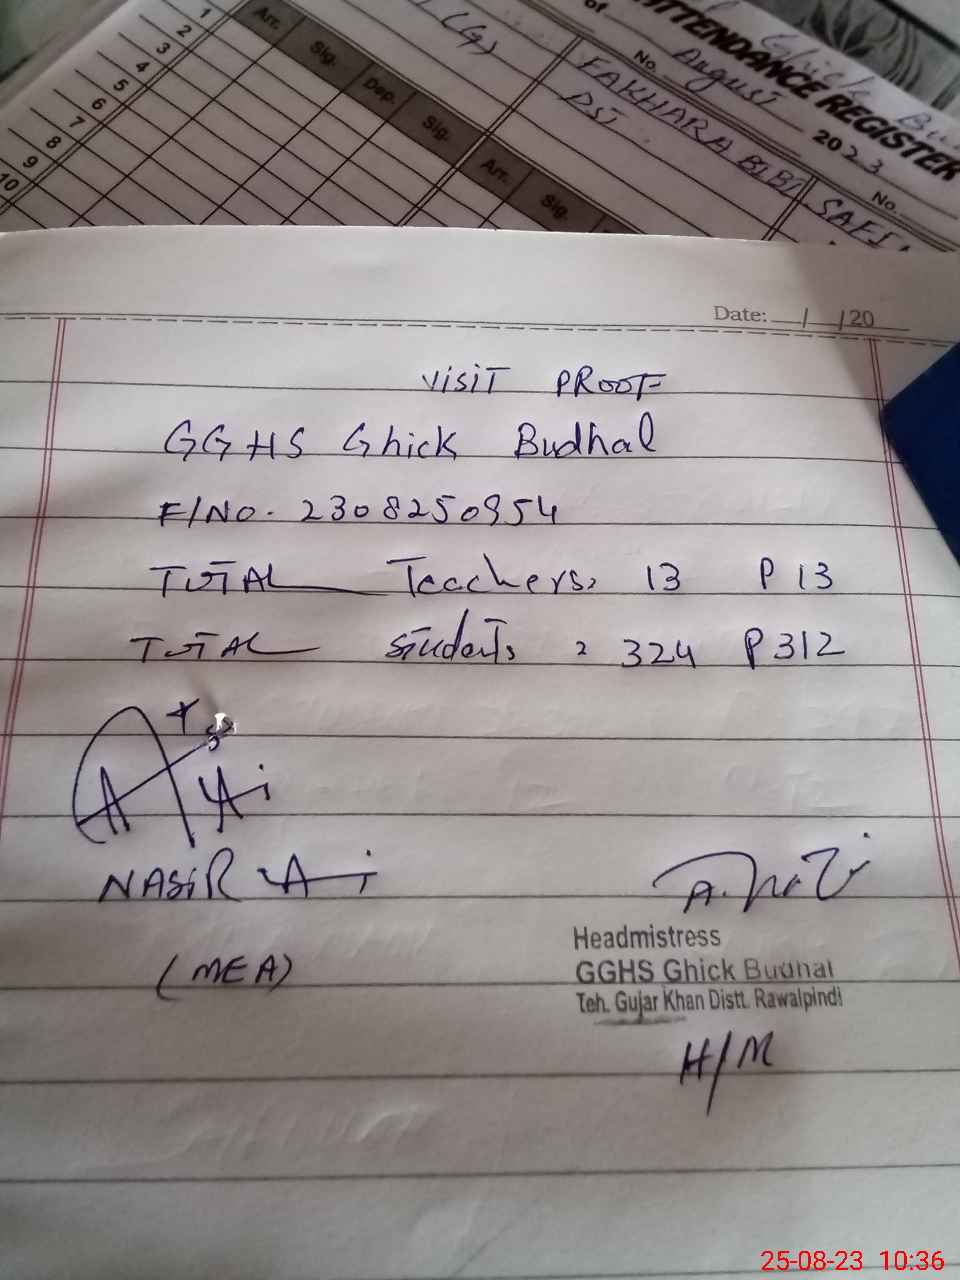 ATTENDANCE REGISTER
of
No. August 2023
No.
(G)
FAKHARA BIBI
PST
Arr. Sig. Dep. Sig. Arr. Sig.
1
2
3
4
5
6
7
8
9
10
Date: __/__/20
VISIT PROOF
GGHS Ghick Budhal
F/NO. 2308250954
TOTAL Teachers, 13 P 13
TOTAL Students = 324 P 312
NASIR Ali
(MEA)
Headmistress
GGHS Ghick Budhal
Teh. Gujar Khan Distt. Rawalpindi
H/M
25-08-23 10:36